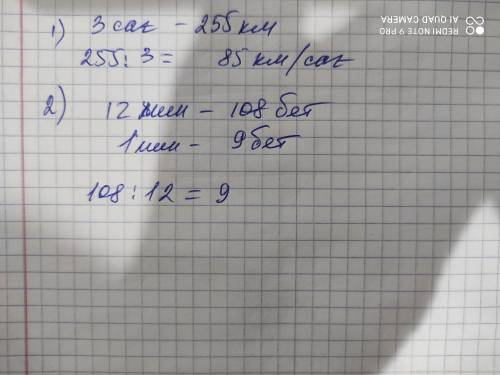 REDMI NOTE 9 PRO
AI QUAD CAMERA
1) 3 саг - 255 км
255 : 3 = 85 км/саг
2) 12 мин - 108 бет
1 мин - 9 бет
108 : 12 = 9